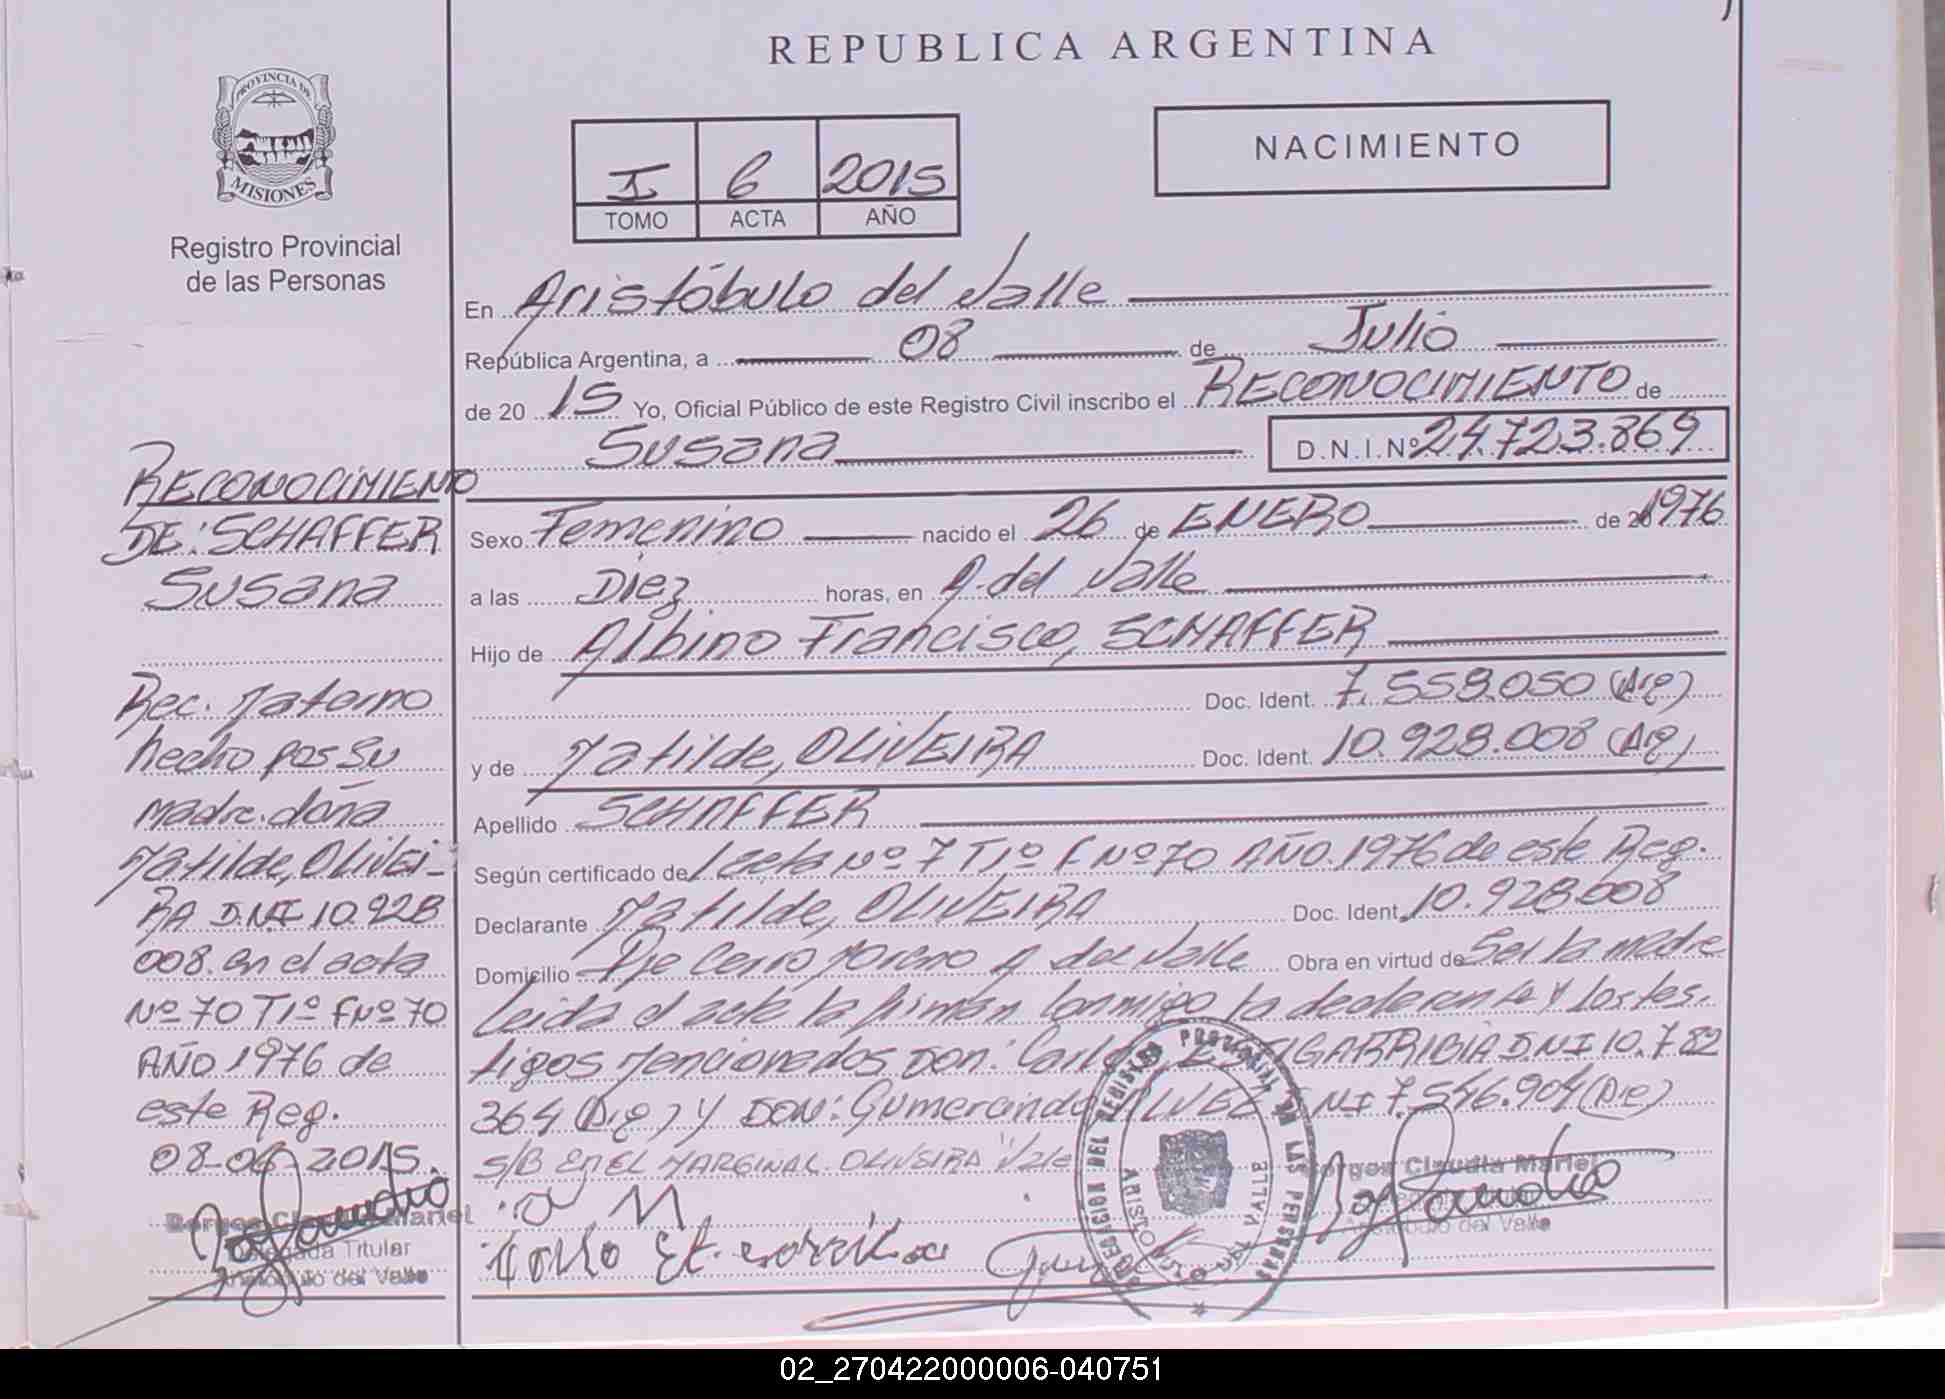 REPUBLICA ARGENTINA
PROVINCIA DE
MISIONES
Registro Provincial
de las Personas
I 6 2015
TOMO ACTA AÑO
NACIMIENTO
En Aristóbulo del Valle
República Argentina, a 08 de Julio
de 20 15 Yo, Oficial Público de este Registro Civil inscribo el RECONOCIMIENTO de
Susana D.N.I.Nº 24.723.869
Sexo Femenino nacido el 26 de ENERO de 20 1976
a las Diez horas, en A. del Valle
Hijo de Albino Francisco, SCHAFFER
Doc. Ident. 7.558.050 (Arg)
y de Matilde, OLIVEIRA Doc. Ident. 10.928.008 (Arg)
Apellido SCHAFFER
Según certificado de Acta Nº 7 T1º F Nº 70 AÑO 1976 de este Reg.
Declarante Matilde, OLIVEIRA Doc. Ident. 10.928.008
Domicilio Pje Cerro Moreno A del Valle Obra en virtud de Ser la madre
Leida el acta la firman conmigo la declarante y los tes-
tigos mencionados DON: DNI 10.782
364 (Arg) y DON: Gumercindo DNI 7.546.904 (Arg)
S/B EN EL MARGINAL OLIVEIRA Vale
RECONOCIMIENTO
DE: SCHAFFER
Susana
Rec. Materno
hecho por su
madre doña
Matilde, OLIVEI-
RA D.N.I 10.928
008. en el acta
Nº 70 T1º F Nº 70
AÑO 1976 de
este Reg.
2015.
Borges Claudia Mariel
Delegada Titular
Aristóbulo del Valle
Borges Claudia Mariel
Aristóbulo del Valle
DELEGACION DEL REGISTRO PROVINCIAL DE LAS PERSONAS
ARISTOBULO DEL VALLE
02_270422000006-040751